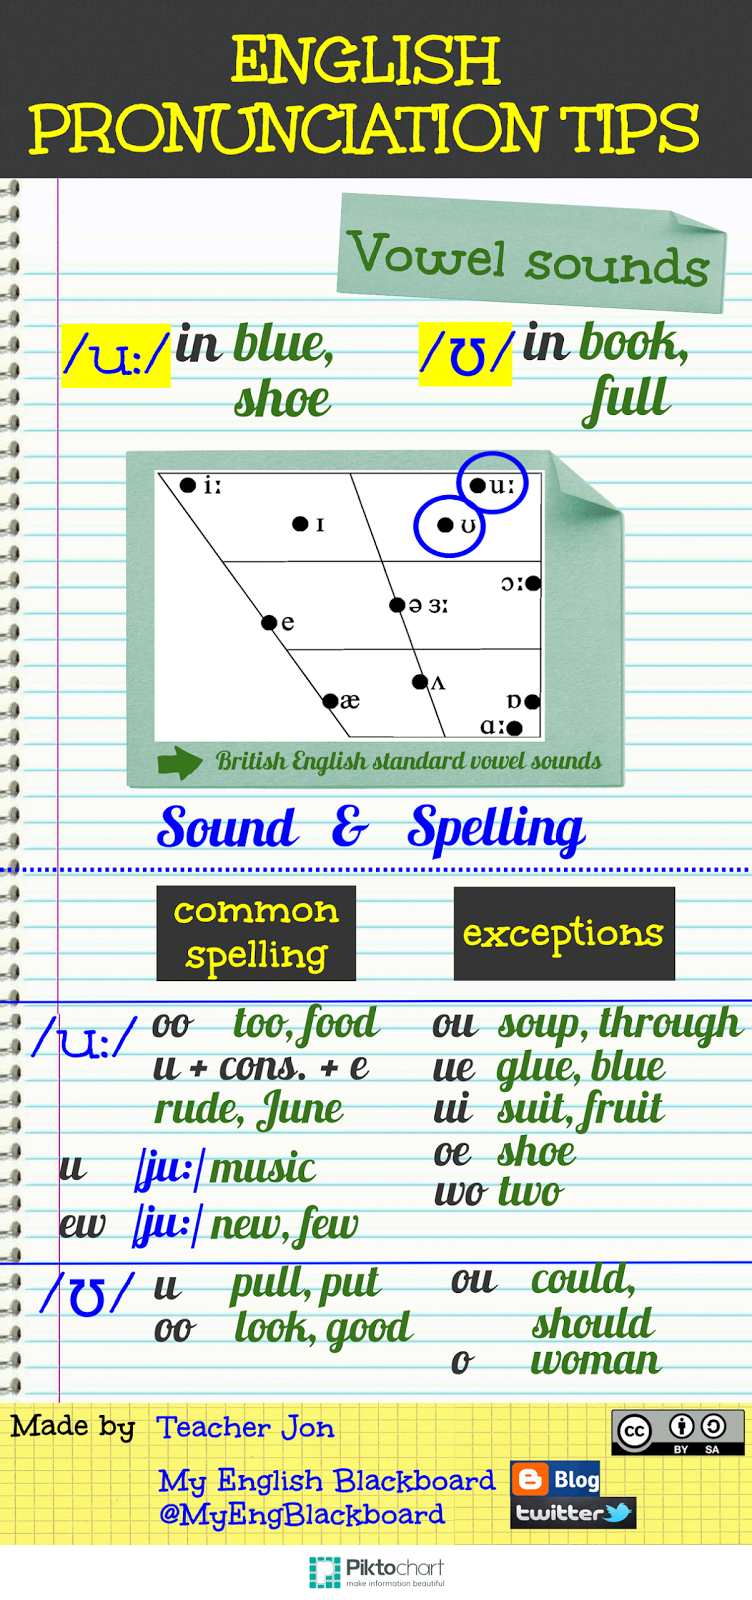 ENGLISH
PRONUNCIATION TIPS
Vowel sounds
/u:/ in blue,
shoe
/ʊ/ in book,
full
i:
u:
ɪ
ʊ
ɔ:
ə ɜ:
e
ʌ
æ
ɒ
ɑ:
British English standard vowel sounds
Sound & Spelling
common
spelling
exceptions
/u:/
oo too, food
u + cons. + e
rude, June
u /ju:/ music
ew /ju:/ new, few
ou soup, through
ue glue, blue
ui suit, fruit
oe shoe
wo two
/ʊ/
u pull, put
oo look, good
ou could,
should
o woman
Made by Teacher Jon
cc BY SA
My English Blackboard
Blog
@MyEngBlackboard
twitter
Piktochart
make information beautiful